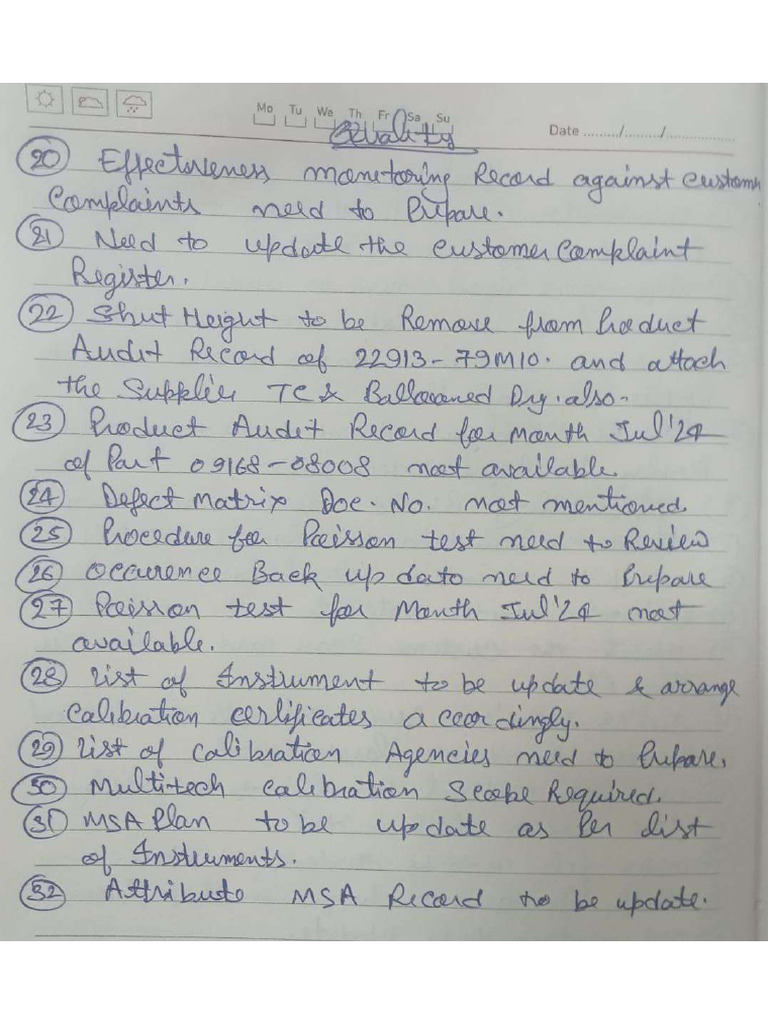 Mo Tu We Th Fr Sa Su
Quality
Date ........./........./.................
20 Effectiveness monitoring Record against customer
Complaints need to Prepare.
21 Need to update the customer Complaint
Register.
22 Shut Height to be Remove from Product
Audit Record of 22913-79M10. and attach
the Supplier TC & Ballooned Drg. also.
23 Product Audit Record for month Jul'24
of Part 09168-08008 not available.
24 Defect Matrix Doc. No. not mentioned.
25 Procedure for Poisson test need to Review
26 Occurence Back up data need to Prepare
27 Poisson test for Month Jul'24 not
available.
28 List of Instrument to be update & arrange
Calibration certificates accordingly.
29 List of Calibration Agencies need to Prepare.
30 Multitech Calibration Scope Required.
31 MSA Plan to be update as Per List
of Instruments.
32 Attribute MSA Record to be update.